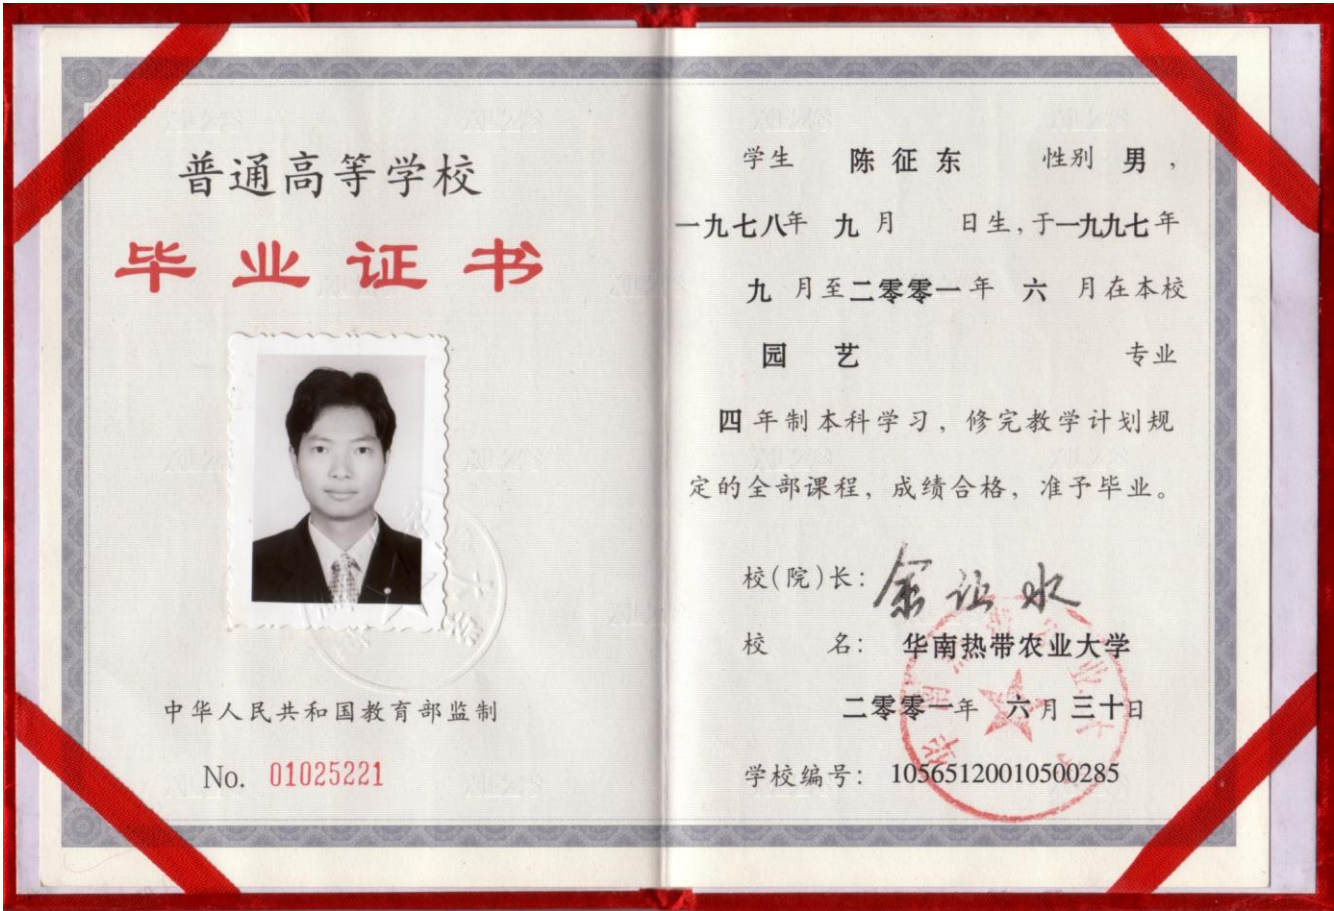 普通高等学校
毕业证书
中华人民共和国教育部监制
No. 01025221
学生 陈征东 性别 男，
一九七八年 九月 日生，于一九九七年
九 月至二零零一年 六 月在本校
园 艺 专业
四年制本科学习，修完教学计划规
定的全部课程，成绩合格，准予毕业。
校(院)长：
校 名： 华南热带农业大学
二零零一年 六月三十日
学校编号： 10565120010500285
华南热带农业大学